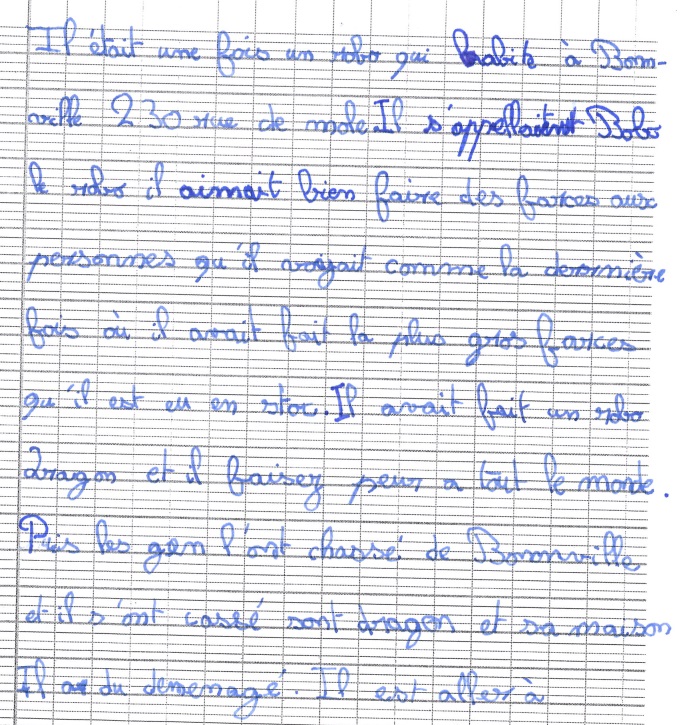 Il était une fois un robo qui habite à Bonn-
ville 230 rue de mole Il s'appellaitent Bobo
le robo il aimait bien faire des farces aux
personnes qu'il voyait comme la dernnière
fois où il avait fait la plus gros farces
qu'il est eu en stoc. Il avait fait un robo
dragon et il faisez peur a tout le monde.
Puis les gen l'ont chassé de Bonnville
et il s'ont cassé sont dragon et sa maison
Il a du demenagé. Il est aller à